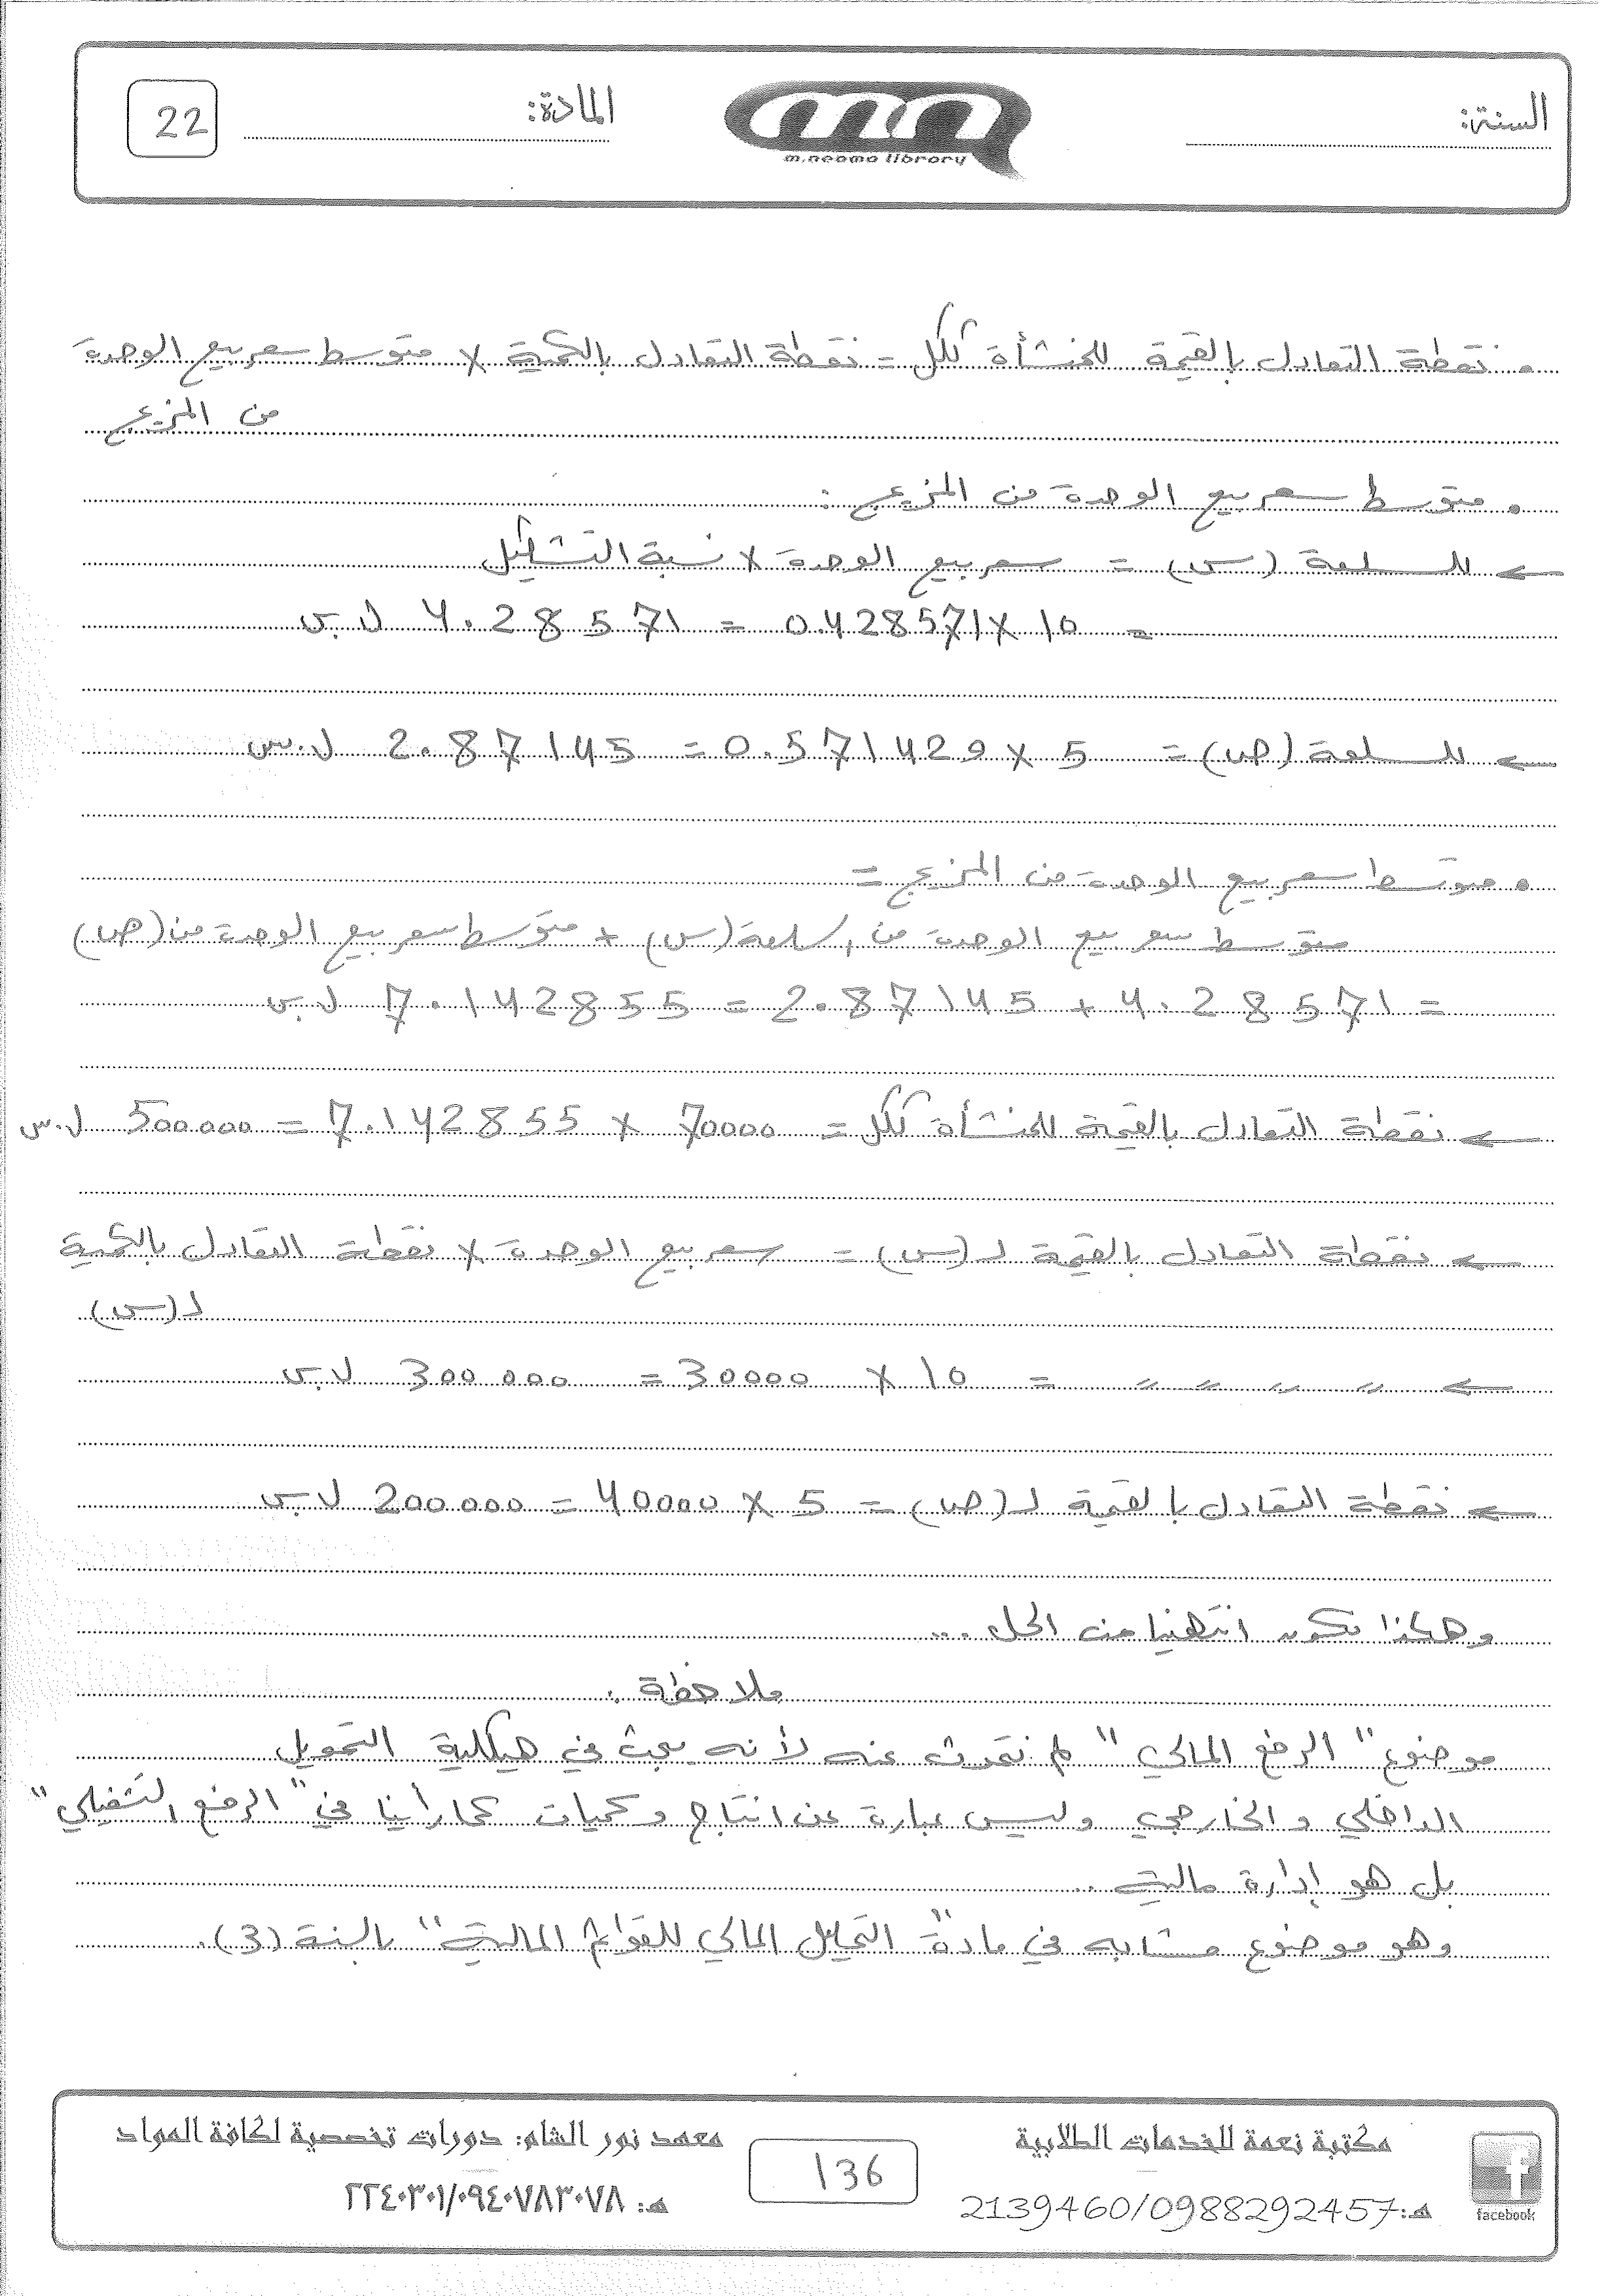 السنة:
m.neama library
المادة:
22
• نقطة التعادل بالقيمة للمنشأة ككل = نقطة التعادل بالكمية × متوسط سعر بيع الوحدة
من المزيج
• متوسط سعر بيع الوحدة من المزيج :
← للسلعة (س) = سعر بيع الوحدة × نسبة التشكيل
= 10 × 0.428571 = 4.28571 ل.س
← للسلعة (ص) = 5 × 0.571429 = 2.87145 ل.س
• متوسط سعر بيع الوحدة من المزيج =
متوسط سعر بيع الوحدة من سلعة (س) + متوسط سعر بيع الوحدة من (ص)
= 4.28571 + 2.87145 = 7.142855 ل.س
← نقطة التعادل بالقيمة للمنشأة ككل = 70000 × 7.142855 = 500.000 ل.س
← نقطة التعادل بالقيمة لـ (س) = سعر بيع الوحدة × نقطة التعادل بالكمية
لـ (س)
← " " " " = 10 × 30000 = 300.000 ل.س
← نقطة التعادل بالقيمة لـ (ص) = 5 × 40000 = 200.000 ل.س
وهكذا نكون انتهينا من الحل ...
ملاحظة :
موضوع "الرفع المالي" لم نتحدث عنه لأنه يبحث في هيكلية التمويل
الداخلي والخارجي وليس عبارة عن انتاج وكميات كما رأينا في "الرفع التشغيلي"
بل هو إدارة مالية ..
وهو موضوع مشابه في مادة "التحليل المالي للقوائم المالية" بالسنة (3).
مكتبة نعمة للخدمات الطلابية
هـ: 2139460/0988292457
facebook
136
معهد نور الشام: دورات تخصصية لكافة المواد
هـ: ٢٢٤٠٣٠١/٠٩٤٠٧٨٣٠٧٨